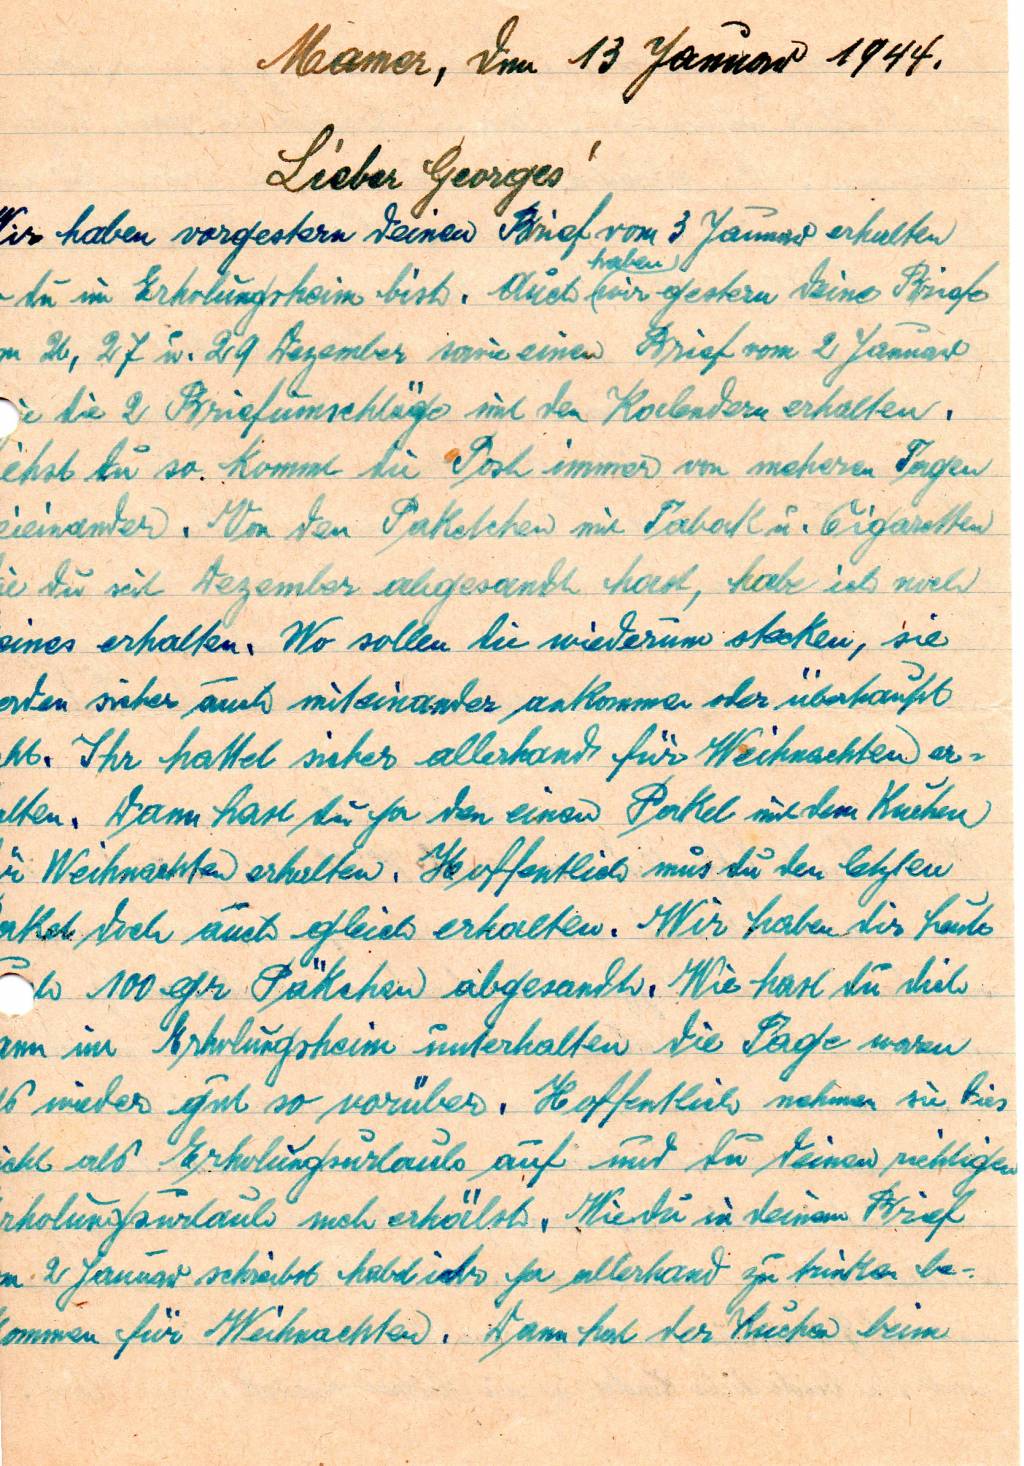 Mamer, den 13 Januar 1944.
Lieber Georges!
Wir haben vorgestern deinen Brief vom 3 Januar erhalten
du im Erholungsheim bist. Auch haben wir gestern deine Briefe
26, 27 u. 29 Dezember sowie einen Brief vom 2 Januar
die 2 Briefumschläge mit den Kalendern erhalten.
du so kommt die Post immer von meheren Tagen
einander. Von den Paketchen mit Tabak u. Cigaretten
du seit Dezember abgesandt hast, habe ich noch
eines erhalten. Wo sollen die wiederum stecken, sie
sicher auch miteinander ankommen oder überhaupt
ht. Ihr hattet sicher allerhand für Weihnachten er-
alten. Dann hast du ja den einen Paket mit dem Kuchen
Weihnachten erhalten. Hoffentlich mus du den letzten
aket doch auch gleich erhalten. Wir haben dir heute
100 gr Päkchen abgesandt. Wie hast du dich
ann im Erholungsheim unterhalten die Tage waren
wieder gut so vorüber. Hoffentlich nehmen sie dies
icht als Erholungsurlaub auf und du deinen richtigen
rholungsurlaub noch erhälst. Wie du in deinem Brief
m 2 Januar schreibst habt ihr ja allerhand zu trinken be-
kommen für Weihnachten. Dann hat der Kuchen beim